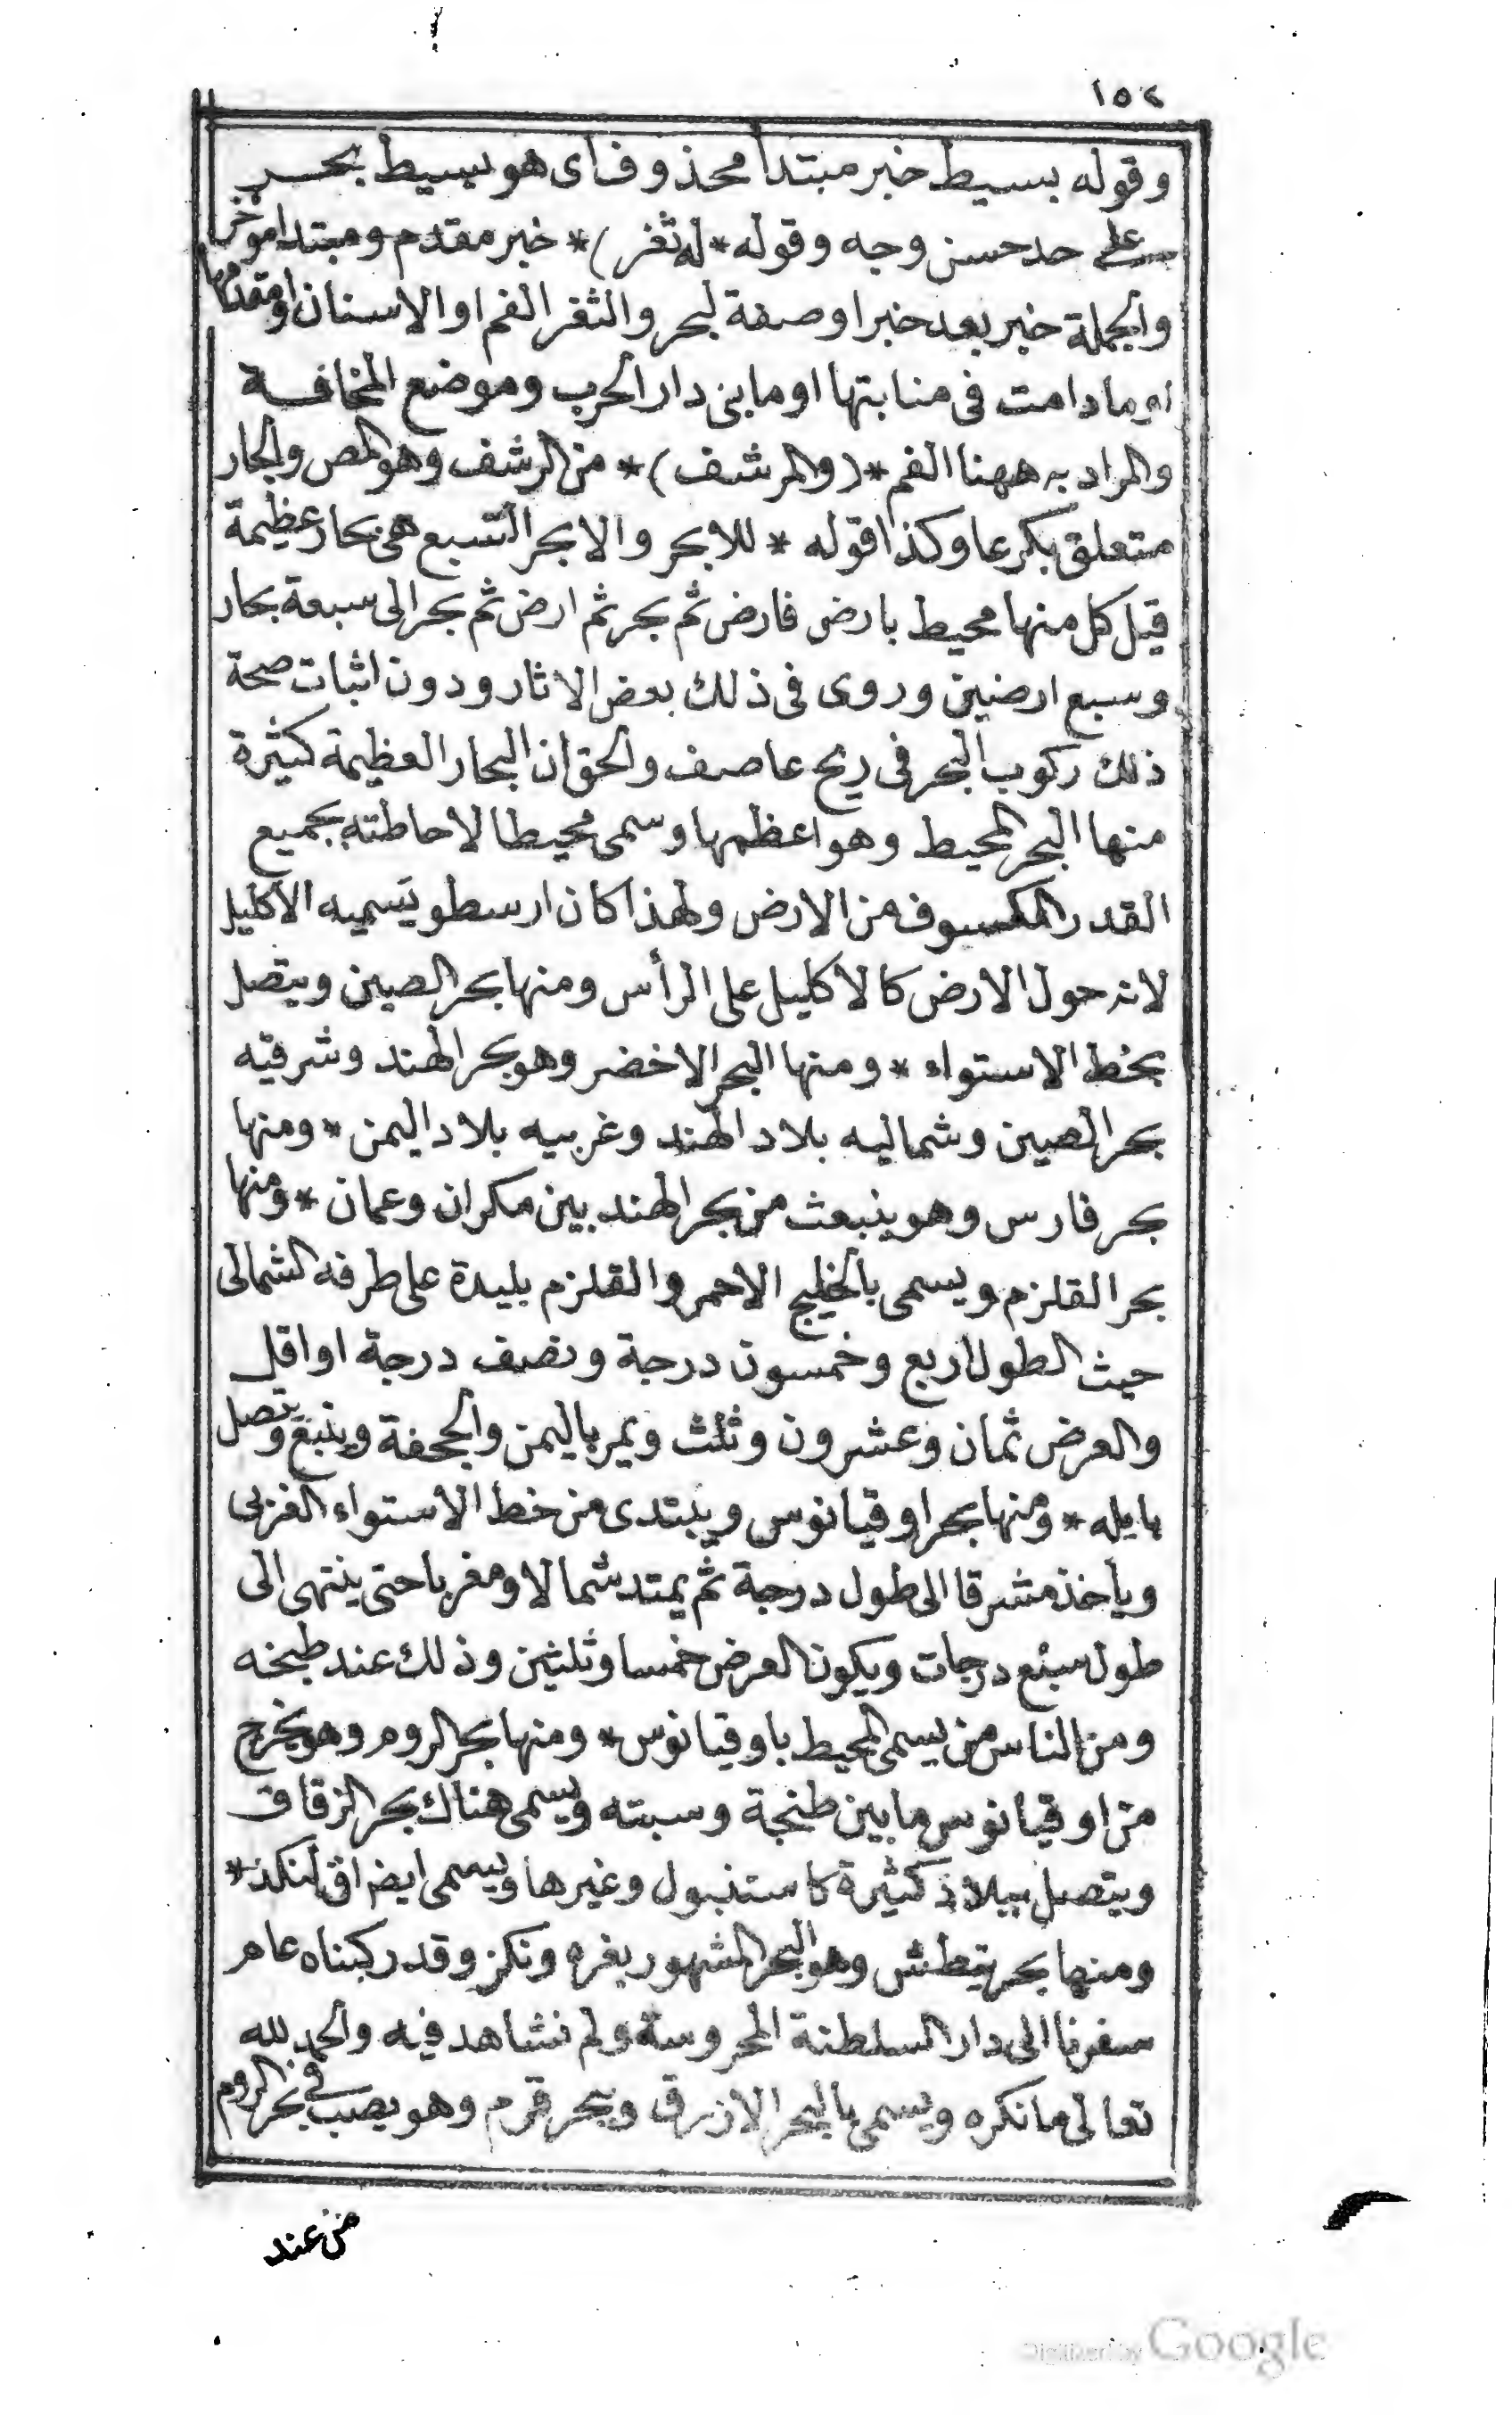 ١٥٢
وقوله بسيط خبر مبتدأ محذوف اى هو بسيط بحر
على حد حسن وجه وقوله * له ثغر ) * خبر مقدم ومبتدا مؤخر
والجملة خبر بعد خبر او صفة لبحر والثغر الفم او الاسنان او مقدمها
او ما دامت فى منابتها او ما بنى دار الحرب وموضع المخافة
والمراد به ههنا الفم * ( والمرشف ) * من الرشف وهو المص والجار
متعلق بكرعا وكذا قوله * للابحر والابحر السبع هى بحار عظيمة
قيل كل منها محيط بارض فارض ثم بحر ثم ارض ثم بحر الى سبعة بحار
وسبع ارضين وروى فى ذلك بعض الاثار ودون اثبات صحة
ذلك ركوب البحر فى ريح عاصف والحق ان البحار العظيمة كثيرة
منها البحر المحيط وهو اعظمها وسمى محيطا لاحاطته بجميع
القدر المكسوف من الارض ولهذا كان ارسطو يسميه الاكليل
لانه حول الارض كالاكليل على الرأس ومنها بحر الصين ويتصل
بخط الاستواء * ومنها البحر الاخضر وهو بحر الهند وشرقيه
بحر الصين وشماليه بلاد الهند وغربيه بلاد اليمن * ومنها
بحر فارس وهو ينبعث من بحر الهند بين مكران وعمان * ومنها
بحر القلزم ويسمى بالخليج الاحمر والقلزم بليدة على طرفه الشمالى
حيث الطول اربع وخمسون درجة ونصف درجة او اقل
والعرض ثمان وعشرون وثلث ويمر باليمن والجحفة وينبع ويتصل
بايله * ومنها بحر اوقيانوس ويبتدى من خط الاستواء الغربى
ويأخذ مشرقا الى طول درجة ثم يمتد شمالا ومغربا حتى ينتهى الى
طول سبع درجات ويكون العرض خمسا وثلثين وذلك عند طبخه
ومن الناس من يسمى المحيط باوقيانوس * ومنها بحر الروم وهو يخرج
من اوقيانوس ما بين طنجة وسبته ويسمى هناك بحر الزقاق
ويتصل ببلاد كثيرة كاستنبول وغيرها ويسمى ايضا اق دنكذ *
ومنها بحر نيطش وهو البحر المشهور بغره ونكز وقد ركبناه عام
سفرنا الى دار السلطنة المحروسة ولم نشاهد فيه والحمد لله
تعالى ما نكره ويسمى بالبحر الازرق وبحر قرم وهو يصب فى بحر الروم
من عند
Digitized by Google